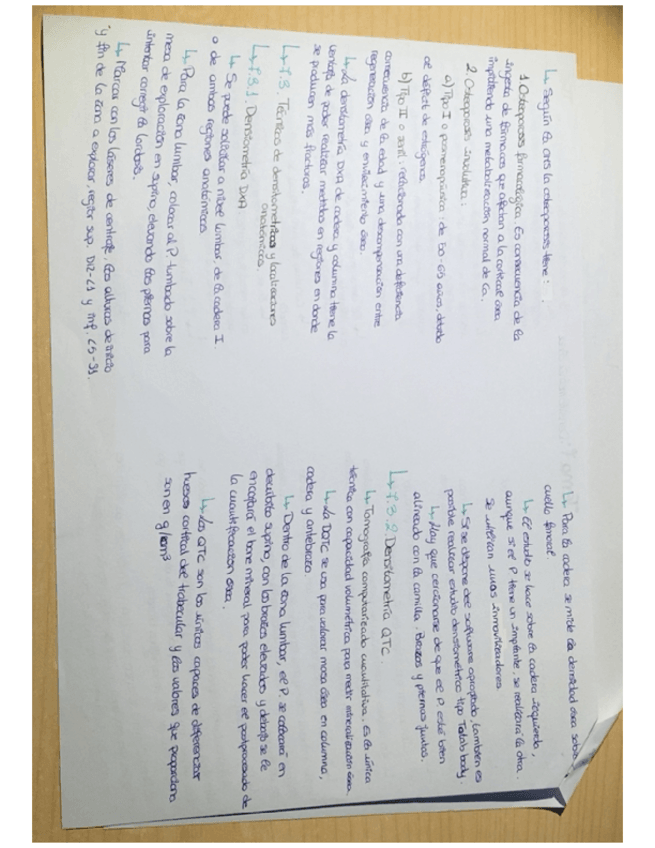 ↳ Según la OMS la osteoporosis tiene:
1. Osteoporosis farmacológica. Es consecuencia de la
ingesta de fármacos que afectan a la cortical ósea
impidiendo una metabolización normal de Ca.
2. Osteoporosis involutiva:
a) Tipo I o posmenopáusica: de 50-65 años, debido
al déficit de estrógenos
b) Tipo II o senil, relacionado con una deficiencia
consecuencia de la edad y una descompensación entre
regeneración ósea y envejecimiento óseo.
↳ La densitometría DXA de cadera y columna tiene la
ventaja de poder realizar medidas en regiones en donde
se producen más fracturas.
↳ 7.3. Técnicas de densitometrías y localizaciones
anatómicas
↳ 7.3.1. Densitometría DXA
↳ Se puede solicitar a nivel lumbar, de la cadera I.
o de ambas regiones anatómicas
↳ Para la zona lumbar, colocar al P. tumbado sobre la
mesa de exploración en supino, elevando las piernas para
intentar corregir la lordosis.
↳ Marcar con los láseres de centraje, las alturas de inicio
y fin de la zona a explorar, región sup. D12-L1 y inf. L5-S1.
↳ Para la cadera se mide la densidad ósea sobre
cuello femoral.
↳ El estudio se hace sobre la cadera izquierda,
aunque si el P tiene un implante, se realizará la otra.
Se utilizan unos inmovilizadores
↳ Si se dispone del software apropiado, también es
posible realizar estudio densitométrico tipo Total body.
↳ Hay que cerciorarse de que el P. esté bien
alineado con la camilla. Brazos y piernas juntas.
↳ 7.3.2. Densitometría QTC.
↳ Tomografía computarizada cuantitativa. Es la única
técnica con capacidad volumétrica para medir mineralización ósea.
↳ La DQTC se usa para valorar masa ósea en columna,
cadera y antebrazo.
↳ Dentro de la zona lumbar, el P. se colocará en
decúbito supino, con los brazos elevados y debajo se le
encajará el bone mineral para poder hacer el postprocesado de
la cuantificación ósea.
↳ Los QTC son los únicos capaces de diferenciar
hueso cortical del trabecular y los valores que proporciona
son en g/cm3